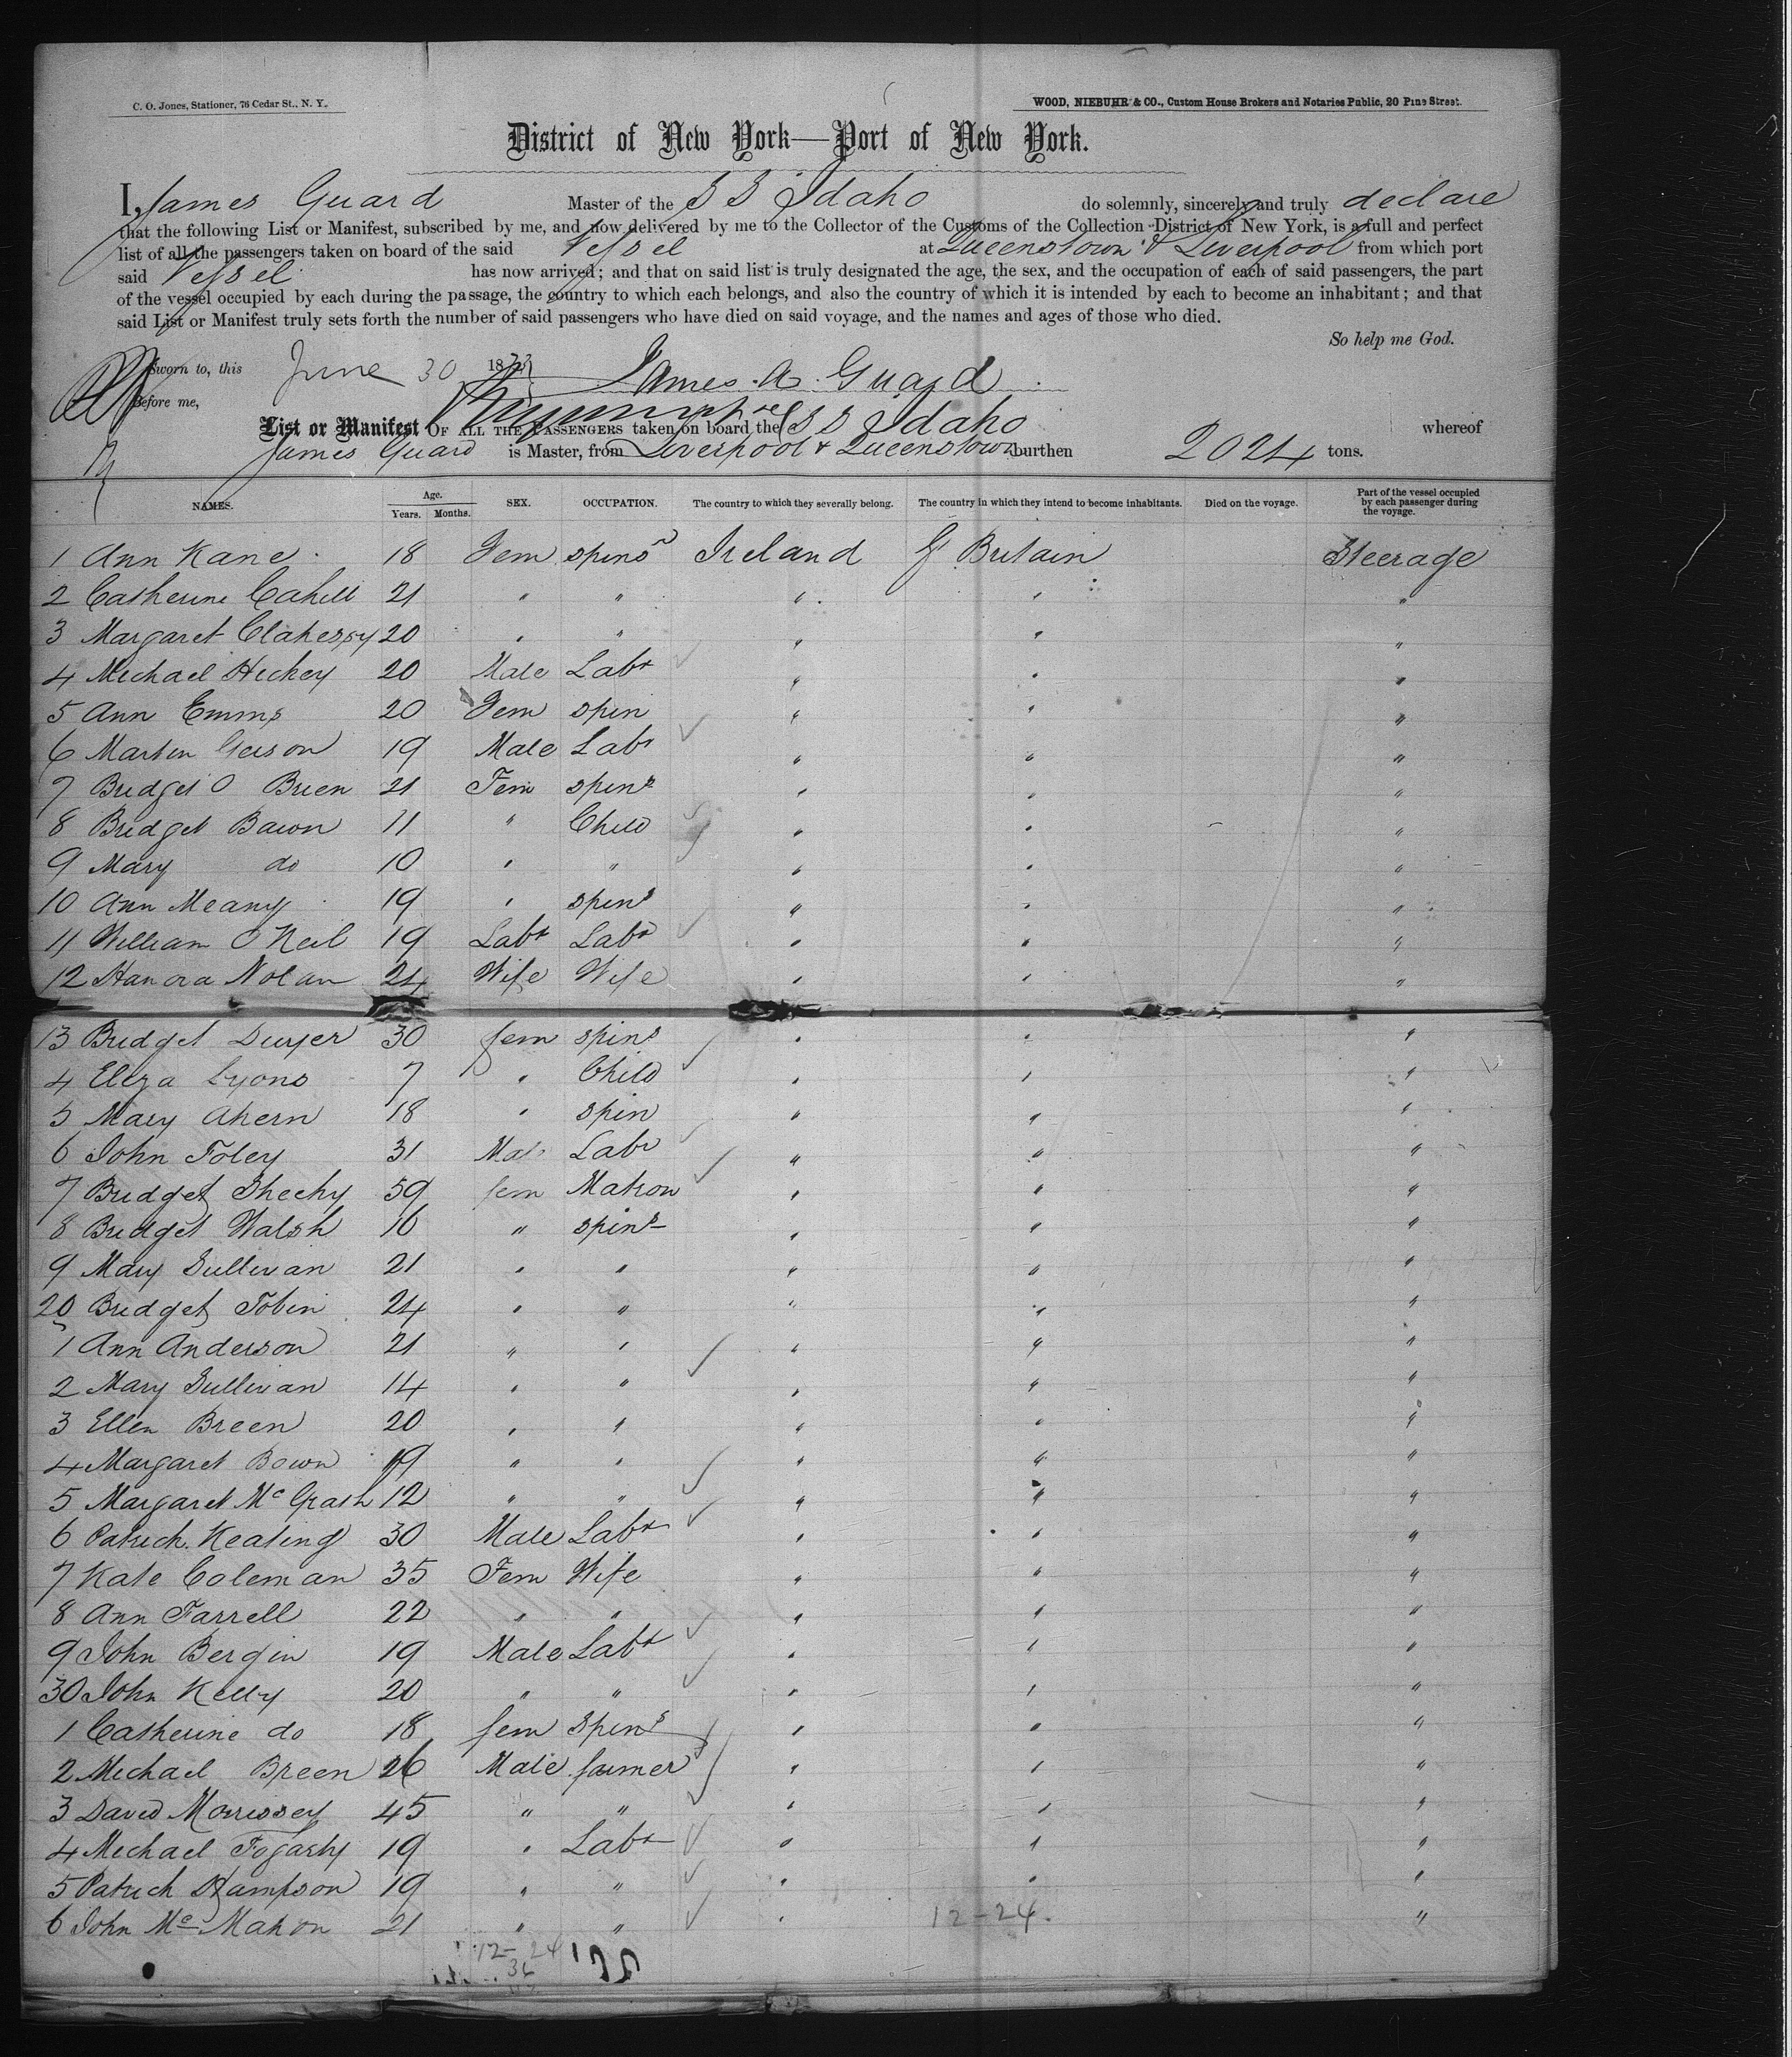 C. O. Jones, Stationer, 76 Cedar St., N. Y.
WOOD, NIEBUHR & CO., Custom House Brokers and Notaries Public, 20 Pine Street.
District of New York—Port of New York.
I, James Guard Master of the S S Idaho do solemnly, sincerely and truly declare
that the following List or Manifest, subscribed by me, and now delivered by me to the Collector of the Customs of the Collection District of New York, is a full and perfect
list of all the passengers taken on board of the said Vessel at Queenstown & Liverpool from which port
said Vessel has now arrived; and that on said list is truly designated the age, the sex, and the occupation of each of said passengers, the part
of the vessel occupied by each during the passage, the country to which each belongs, and also the country of which it is intended by each to become an inhabitant; and that
said List or Manifest truly sets forth the number of said passengers who have died on said voyage, and the names and ages of those who died.
So help me God.
Sworn to, this June 30 1873 James A Guard
Before me,
List or Manifest OF ALL THE PASSENGERS taken on board the S S Idaho whereof
James Guard is Master, from Liverpool & Queenstown burthen 2024 tons.
NAMES. Age. Years. Months. SEX. OCCUPATION. The country to which they severally belong. The country in which they intend to become inhabitants. Died on the voyage. Part of the vessel occupied by each passenger during the voyage.
1 Ann Kane 18 Fem spins Ireland Gt Britain Steerage
2 Catherine Cahill 21 " " " " "
3 Margaret Clahessy 20 " " " " "
4 Michael Hickey 20 Male Labr " " "
5 Ann Emms 20 Fem spin " " "
6 Martin Geison 19 Male Labr " " "
7 Bridget O Brien 21 Fem spins " " "
8 Bridget Bawn 11 " Child " " "
9 Mary do 10 " " " " "
10 Ann Meany 19 " spins " " "
11 William O Neil 19 Labr Labr " " "
12 Hanora Nolan 24 Wife Wife " " "
13 Bridget Dwyer 30 fem spins " " "
4 Eliza Lyons 7 " Child " " "
5 Mary Ahern 18 " spin " " "
6 John Foley 31 Male Labr " " "
7 Bridget Sheehy 59 fem Matron " " "
8 Bridget Walsh 16 " spins " " "
9 Mary Sullivan 21 " " " " "
20 Bridget Tobin 24 " " " " "
1 Ann Anderson 21 " " " " "
2 Mary Sullivan 14 " " " " "
3 Ellen Breen 20 " " " " "
4 Margaret Bown 19 " " " " "
5 Margaret Mc Grath 12 " " " " "
6 Patrick Keating 30 Male Labr " " "
7 Kate Coleman 35 Fem Wife " " "
8 Ann Farrell 22 " " " " "
9 John Bergin 19 Male Labr " " "
30 John Kelly 20 " " " " "
1 Catherine do 18 fem spins " " "
2 Michael Breen 26 Male farmer " " "
3 David Morrissey 45 " " " " "
4 Michael Fogarty 19 " Labr " " "
5 Patrick Hampson 19 " " " " "
6 John Mc Mahon 21 " " " 12-24 "
12-24
36